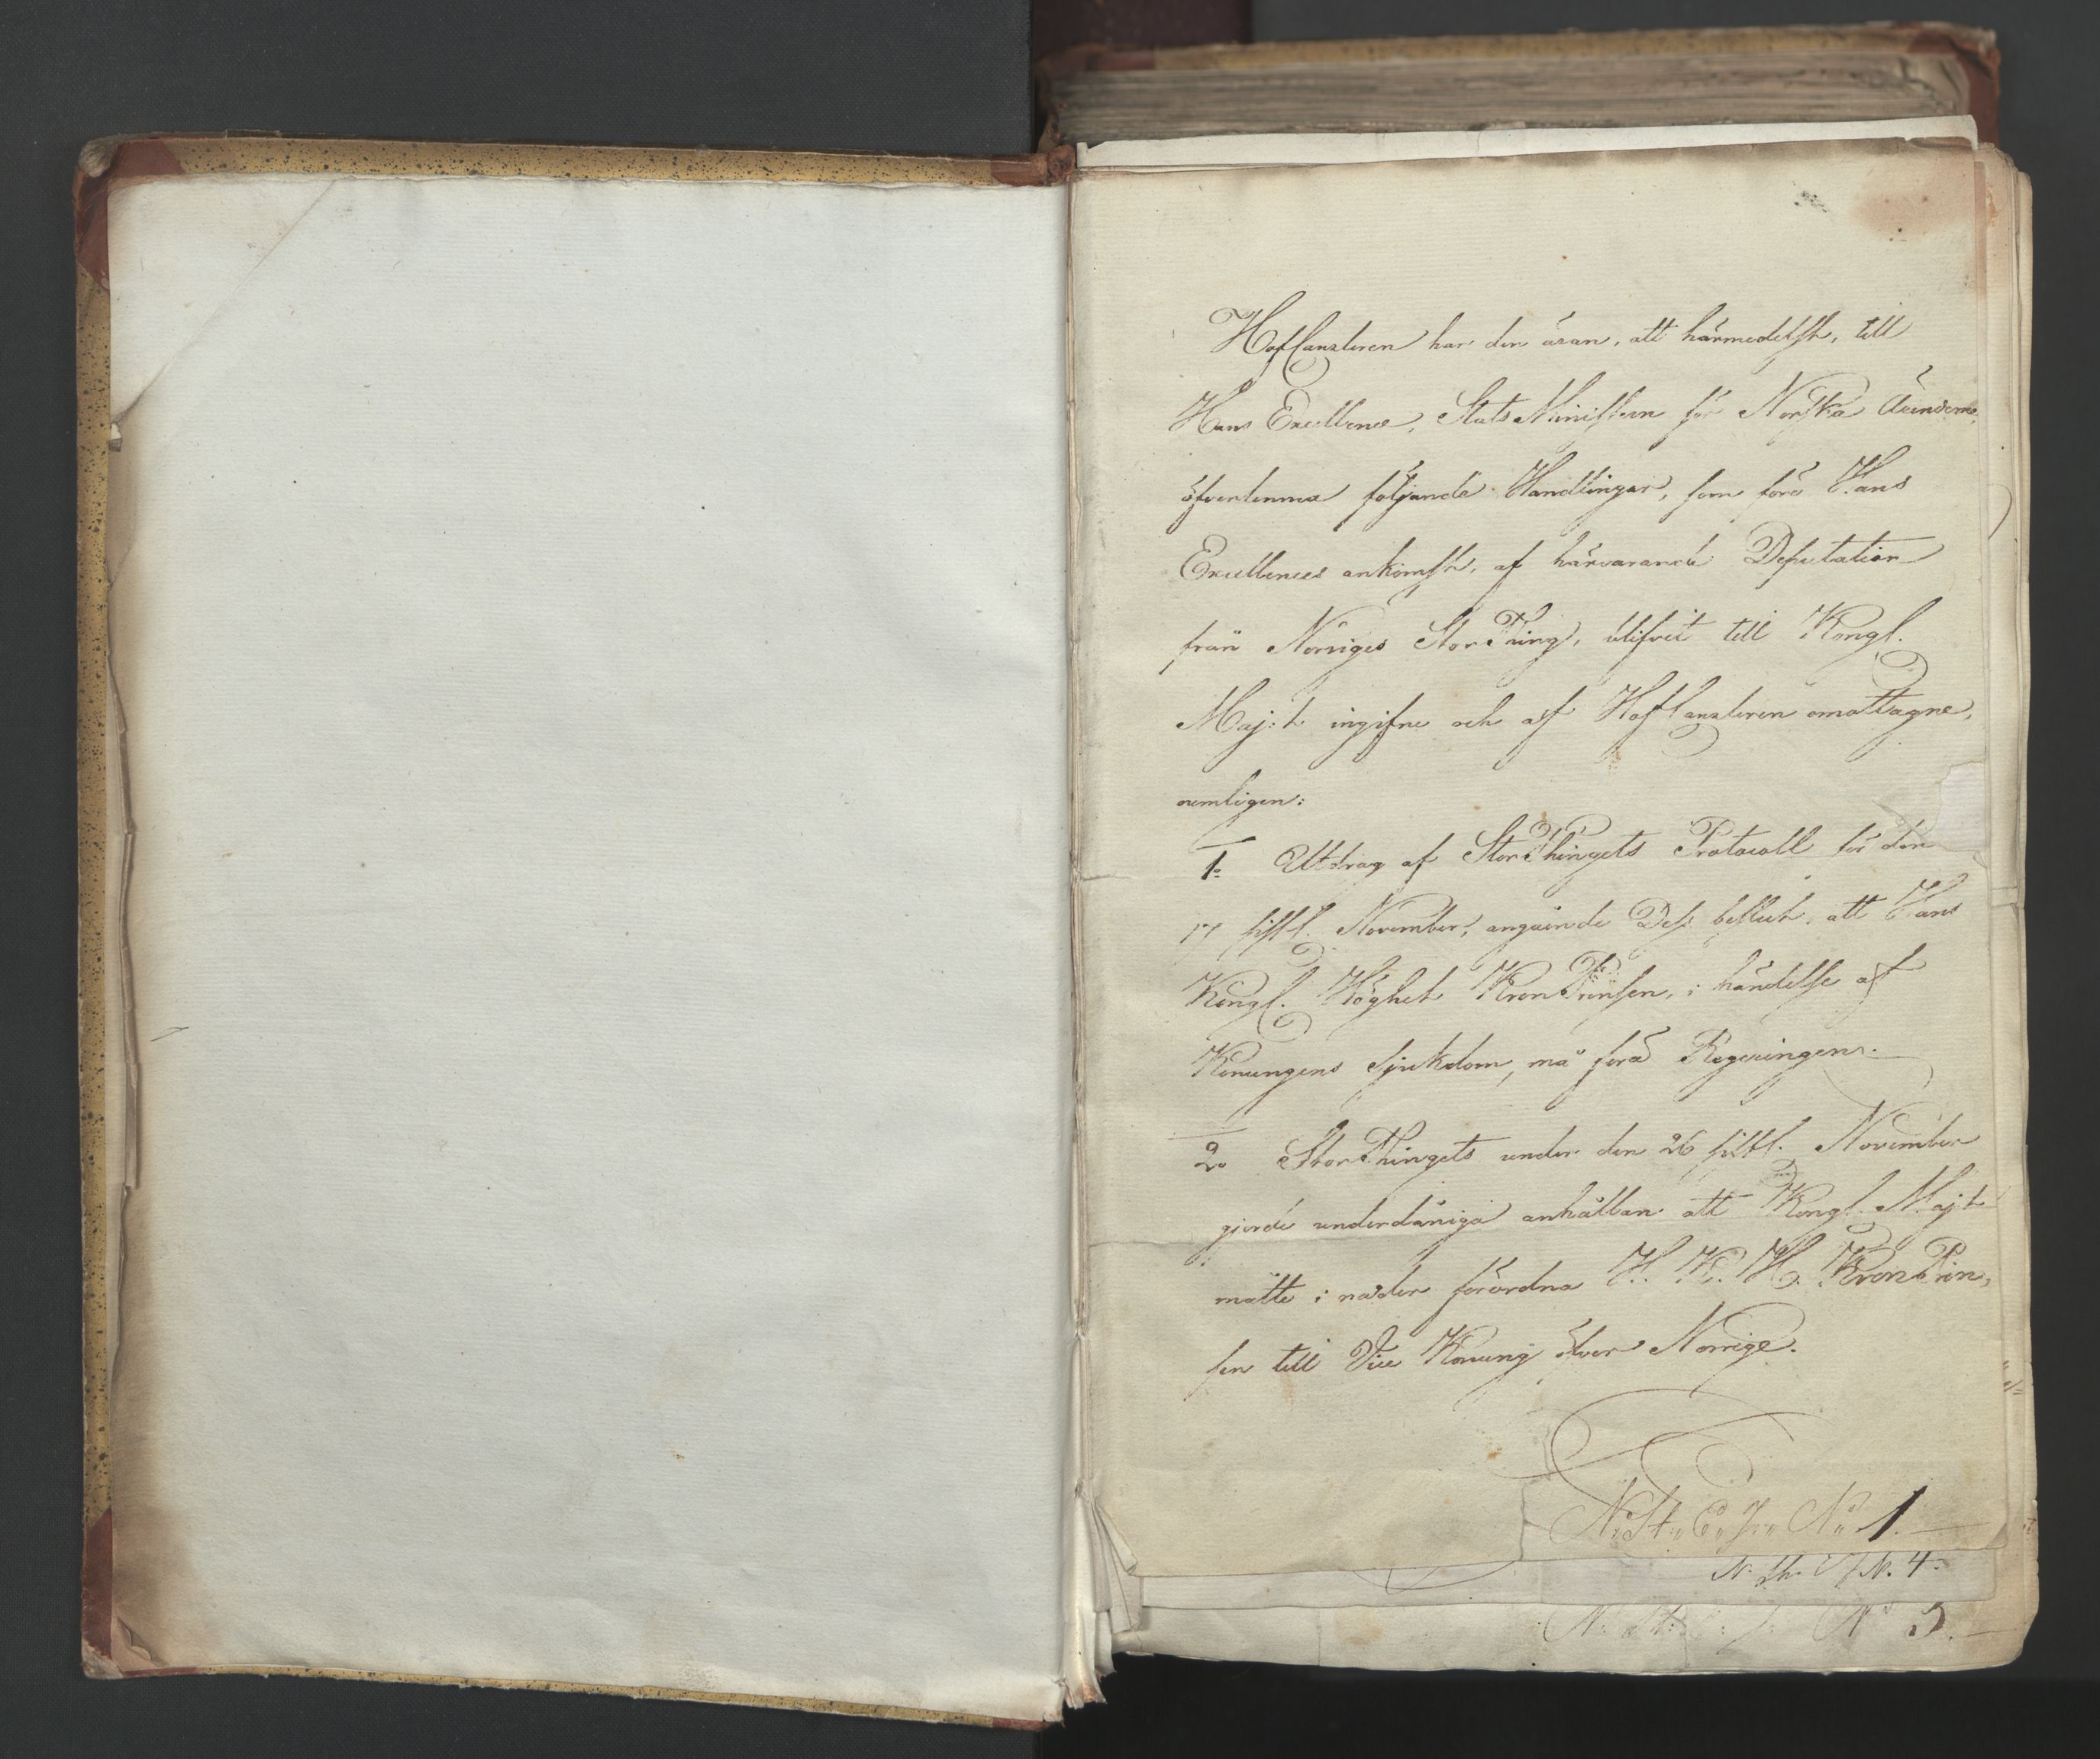 HofCanzleren har den äran, att härmedelst, till
Hans Excellence, StatsMinistern för Norska Ärenderne,
öfverlemna följande Handlingar, som före Hans
Excellences ankomst, af härvarande Deputation
från Norriges StorThing, blifvit till Kongl.
Maj:t ingifne och af HofCanzleren emottagne,
nemligen:
1o Utdrag af StorThingets Protocoll för den
17 sistl. November, angående Dess beslut, att Hans
Kongl. Höghet KronPrinsen, i händelse af
Konungens sjukdom, må föra Regeringen.
2o StorThingets under den 26 sistl. November
gjorde underdåniga anhållan att Kongl. Maj:t
måtte i nåder förordna H. K. H. KronPrin-
sen till Vice Konung öfver Norrige.
N. St. E. J. No 1.
N. St. E. J. N. 4.
N. St. E. J. No 5.